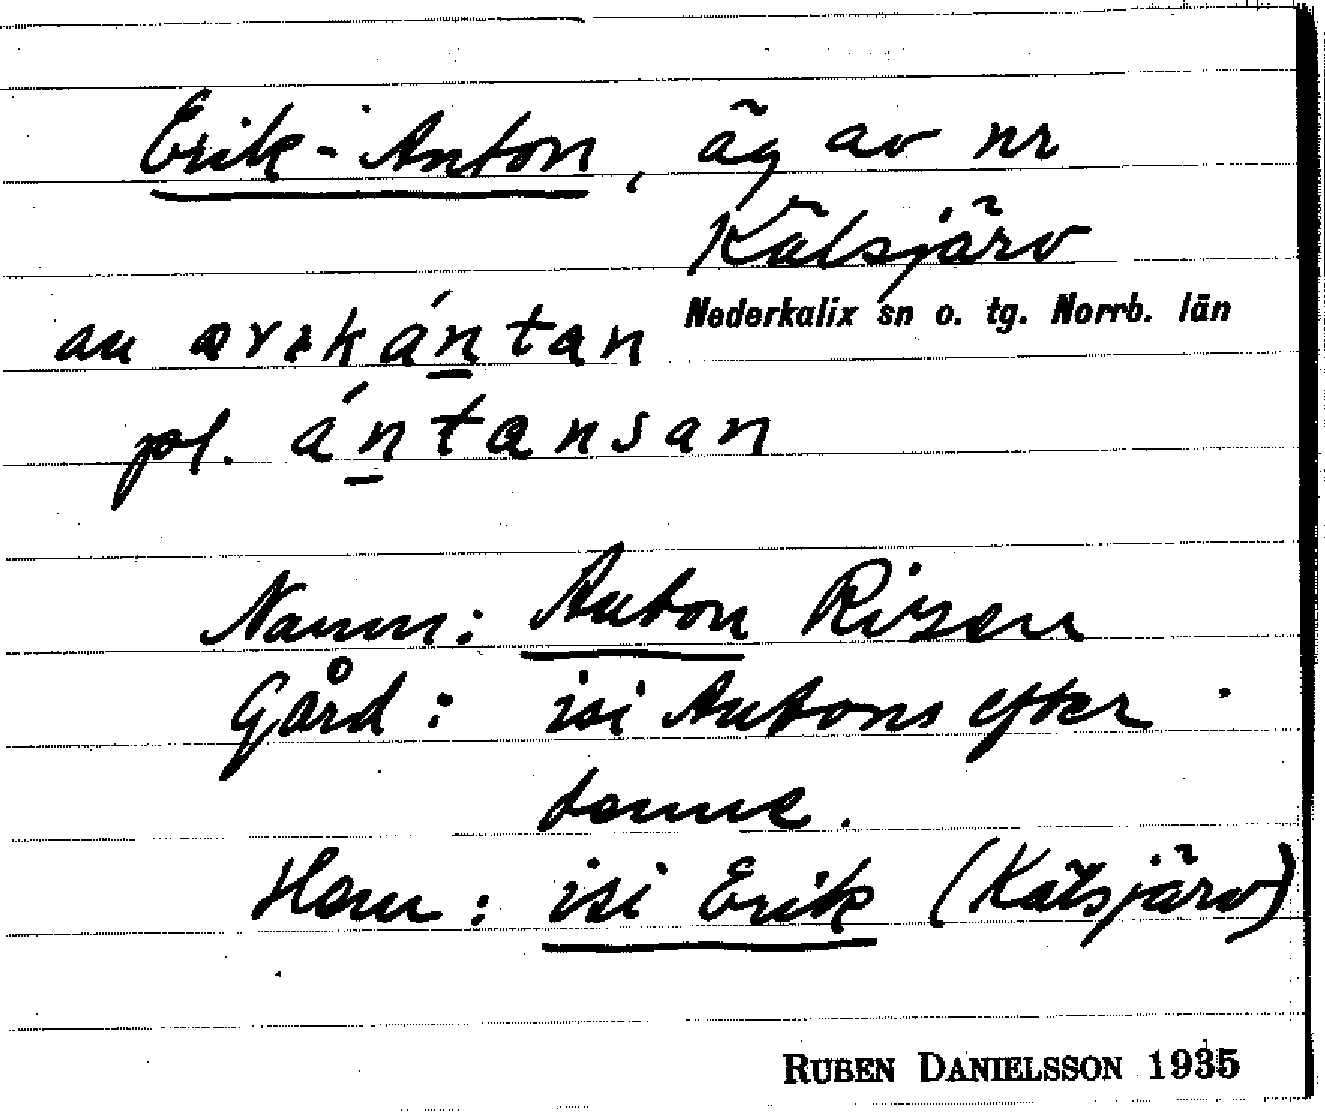 Erik-Anton, äg av nr
Kälsjärv
Nederkalix sn o. tg. Norrb. län
au ærɩkántan
pl. ántansan
Namn: Anton Risén
Gård: isi Antons efter
henne.
Hem: isi Erik (Kälsjärv)
RUBEN DANIELSSON 1935